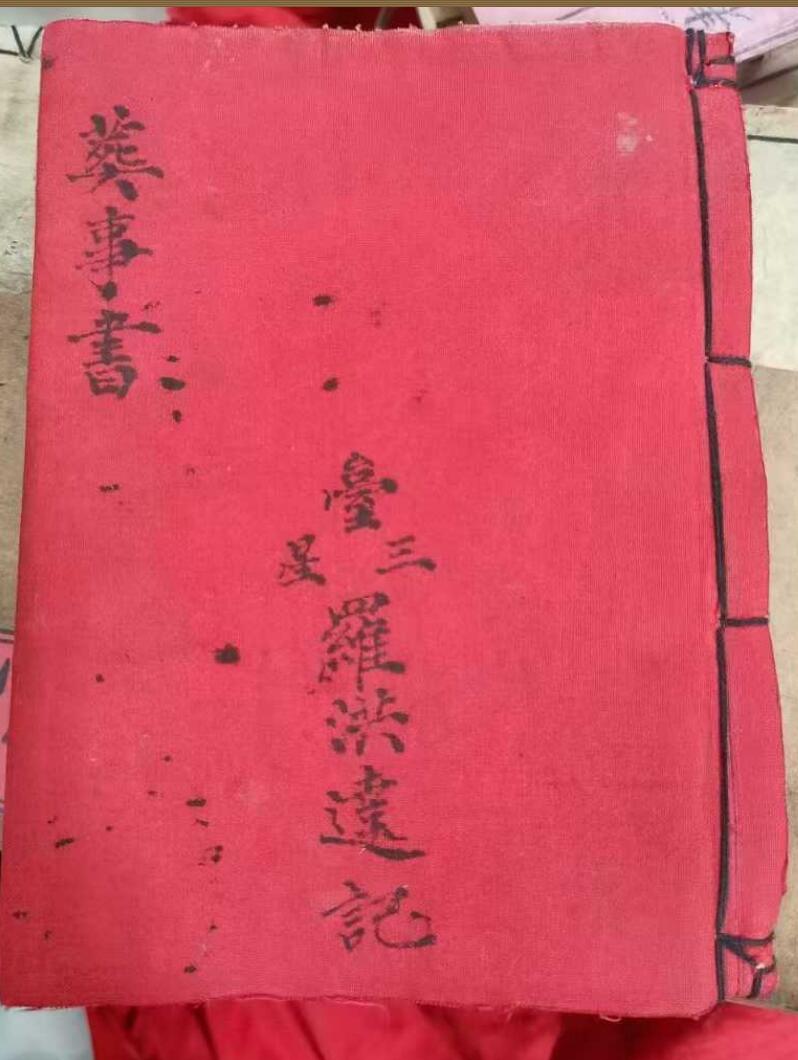 葬事書
臺
三星
羅洪達記